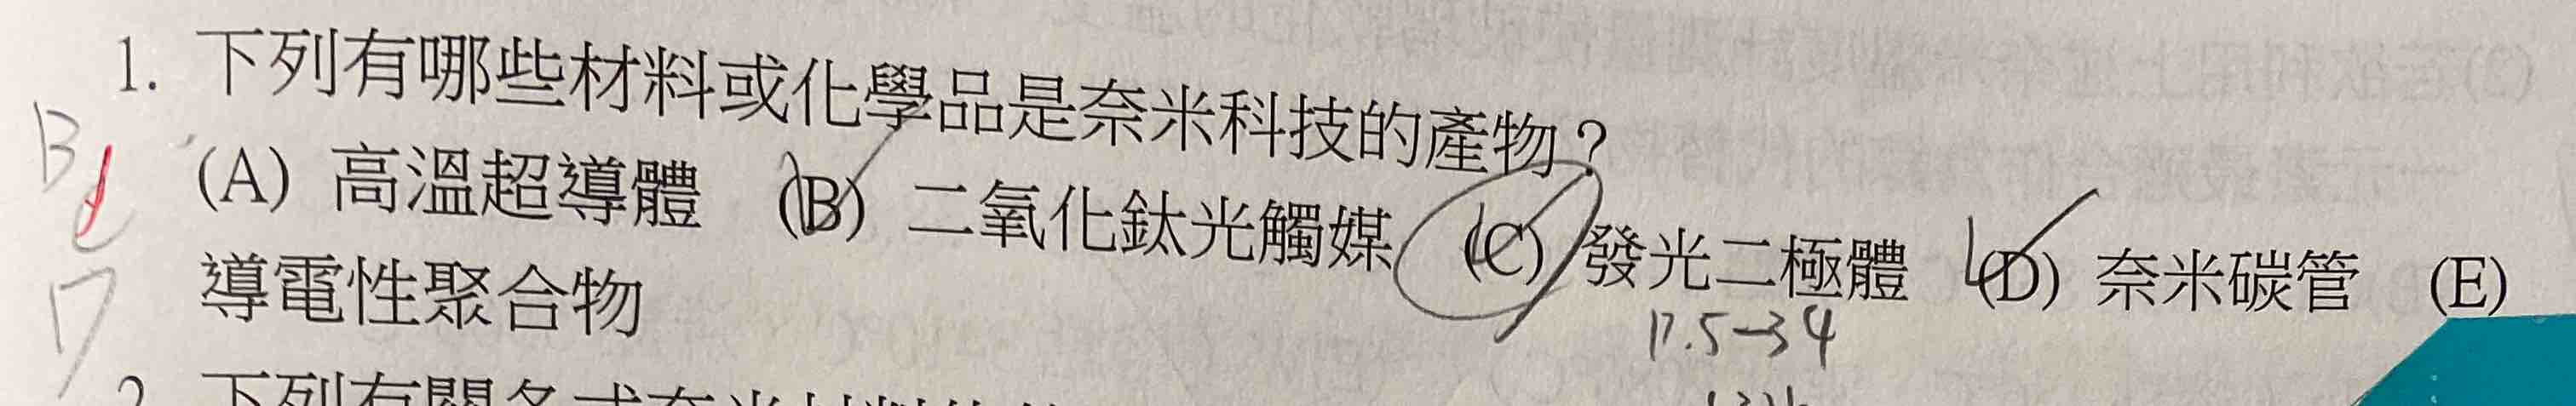 1. 下列有哪些材料或化學品是奈米科技的產物？
B
(A) 高溫超導體 (B) 二氧化鈦光觸媒 (C) 發光二極體 (D) 奈米碳管 (E)
C
導電性聚合物
D
P.5-34
2. 下列有關各式奈米材料